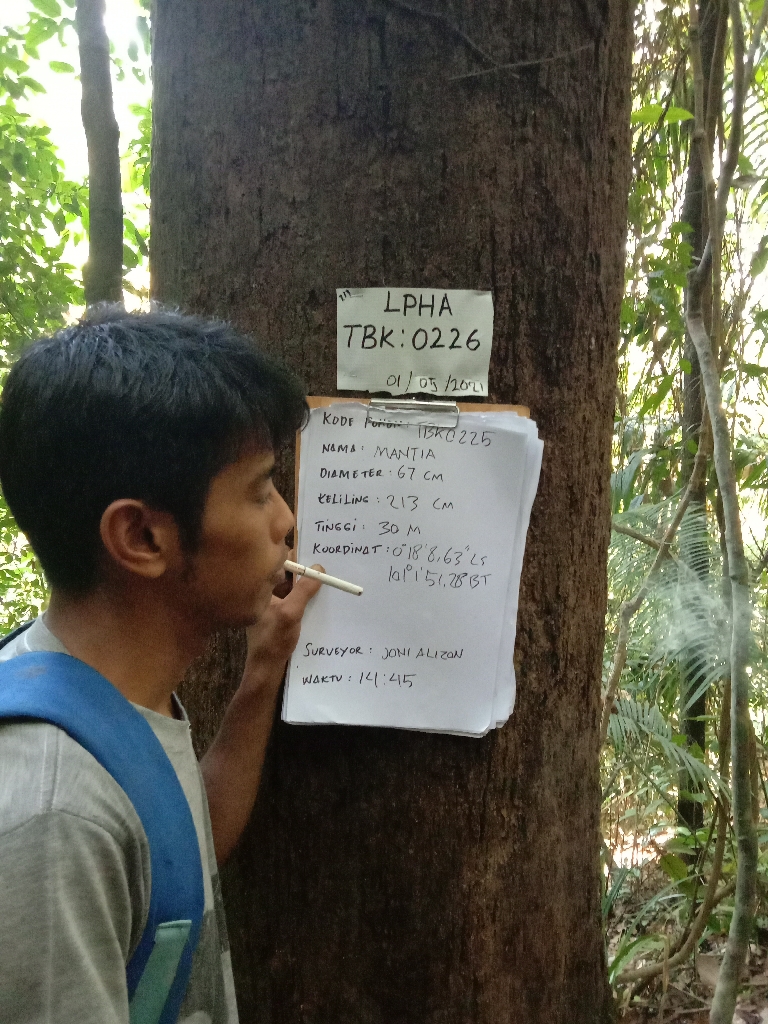 LPHA
TBK:0226
01/05/2021
KODE POHON: TBK0225
NAMA: MANTIA
DIAMETER: 67 CM
KELILING: 213 CM
TINGGI: 30 M
KOORDINAT: 0°18'8,63" LS
101°1'51,28 BT
SURVEYOR: JONI ALIZON
WAKTU: 14:45